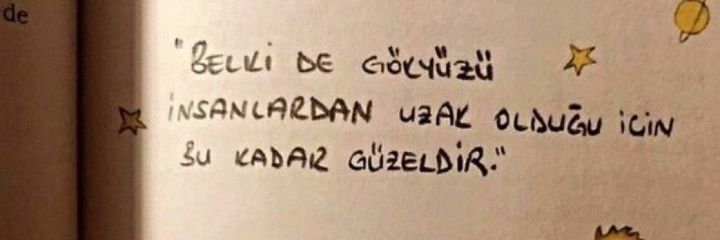 de
"BELKİ DE GÖKYÜZÜ
İNSANLARDAN UZAK OLDUĞU İÇİN
BU KADAR GÜZELDİR."